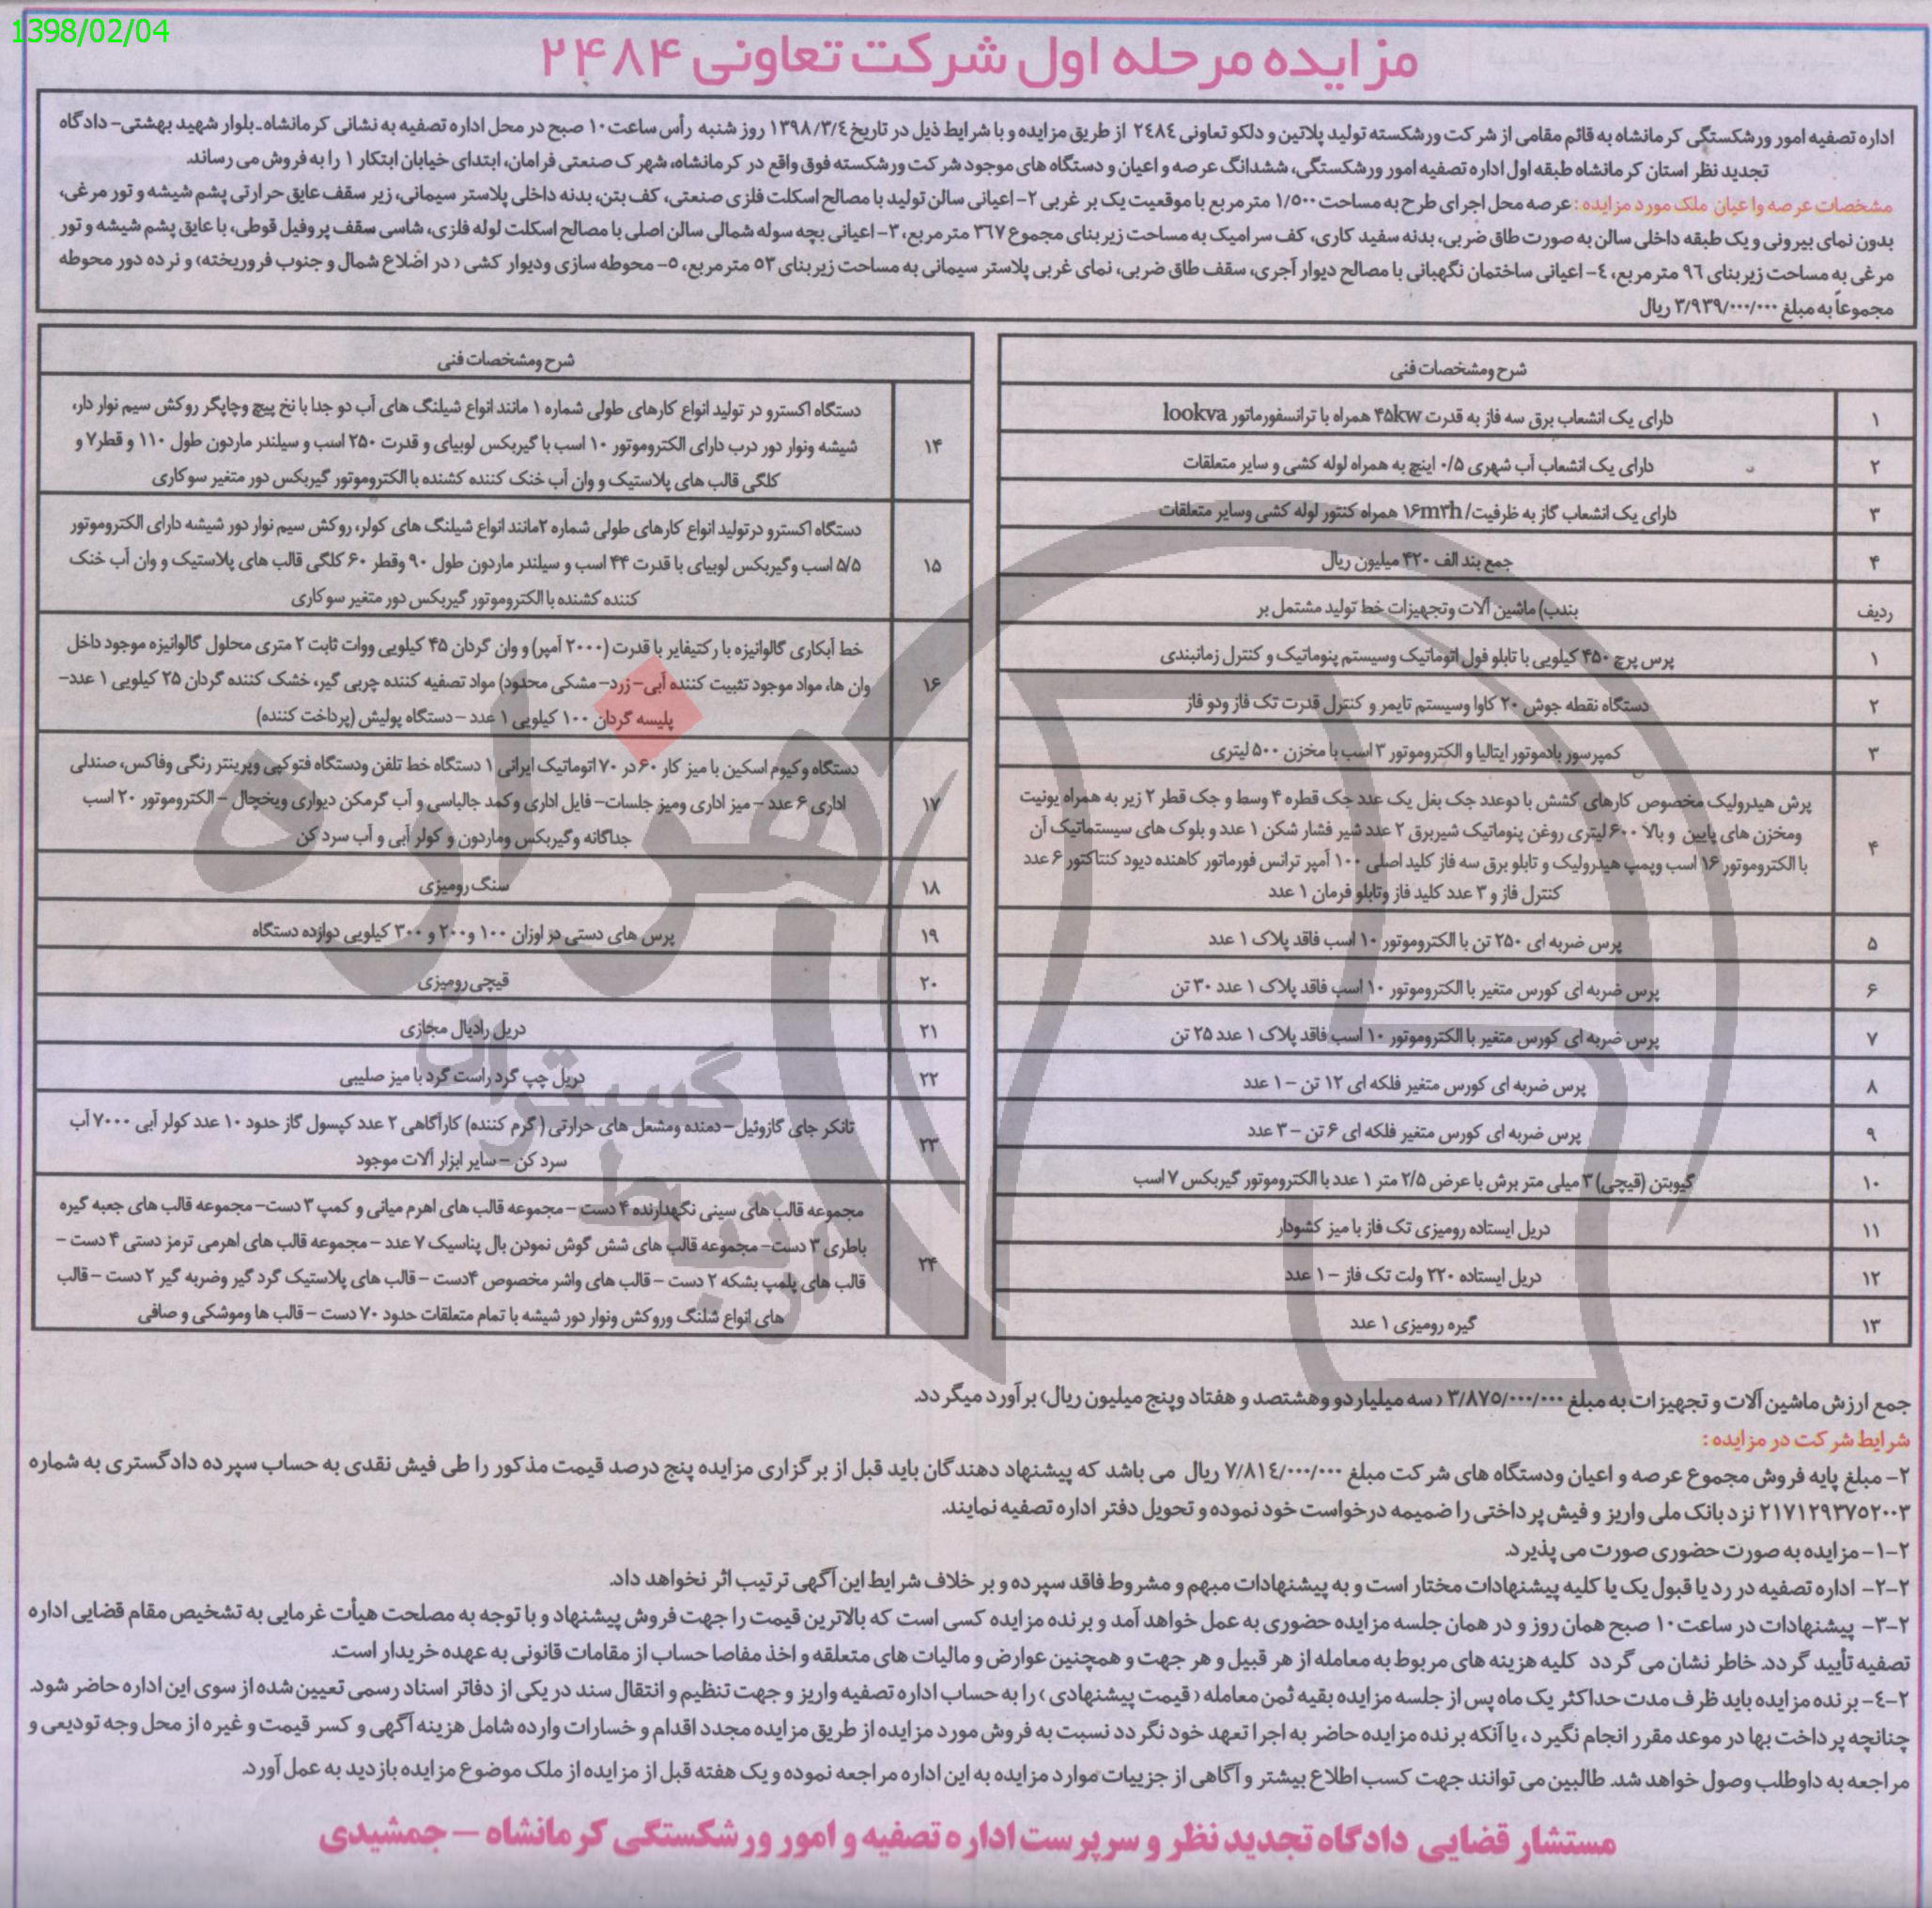 1398/02/04
مزایده مرحله اول شرکت تعاونی ۲۴۸۴
اداره تصفیه امور ورشکستگی کرمانشاه به قائم مقامی از شرکت ورشکسته تولید پلاتین و دلکو تعاونی ۲٤٨٤ از طریق مزایده و با شرایط ذیل در تاریخ ۱۳۹۸/۳/٤ روز شنبه رأس ساعت ۱۰ صبح در محل اداره تصفیه به نشانی کرمانشاه-بلوار شهید بهشتی- دادگاه
تجدید نظر استان کرمانشاه طبقه اول اداره تصفیه امور ورشکستگی، ششدانگ عرصه و اعیان و دستگاه های موجود شرکت ورشکسته فوق واقع در کرمانشاه، شهرک صنعتی فرامان، ابتدای خیابان ابتکار ۱ را به فروش می رساند.
مشخصات عرصه و اعیان ملک مورد مزایده: عرصه محل اجرای طرح به مساحت ۱/۵۰۰ مترمربع با موقعیت یک بر غربی ۲- اعیانی سالن تولید با مصالح اسکلت فلزی صنعتی، کف بتن، بدنه داخلی پلاستر سیمانی، زیر سقف عایق حرارتی پشم شیشه و تور مرغی،
بدون نمای بیرونی و یک طبقه داخلی سالن به صورت طاق ضربی، بدنه سفید کاری، کف سرامیک به مساحت زیربنای مجموع ۳٦۷ مترمربع، ۳- اعیانی بچه سوله شمالی سالن اصلی با مصالح اسکلت لوله فلزی، شاسی سقف پروفیل قوطی، با عایق پشم شیشه و تور
مرغی به مساحت زیربنای ۹٦ مترمربع، ٤- اعیانی ساختمان نگهبانی با مصالح دیوار آجری، سقف طاق ضربی، نمای غربی پلاستر سیمانی به مساحت زیربنای ۵۳ مترمربع، ۵- محوطه سازی و دیوار کشی ( در اضلاع شمال و جنوب فروریخته) و نرده دور محوطه
مجموعاً به مبلغ ۳/۹۳۹/۰۰۰/۰۰۰ ریال
شرح ومشخصات فنی
۱ دارای یک انشعاب برق سه فاز به قدرت ۴۵kw همراه با ترانسفورماتور lookva
۲ دارای یک انشعاب آب شهری ۰/۵ اینچ به همراه لوله کشی و سایر متعلقات
۳ دارای یک انشعاب گاز به ظرفیت/ ۱۶m۳h همراه کنتور لوله کشی وسایر متعلقات
۴ جمع بند الف ۴۲۰ میلیون ریال
ردیف بندب) ماشین آلات وتجهیزات خط تولید مشتمل بر
۱ پرس پرچ ۴۵۰ کیلویی با تابلو فول اتوماتیک وسیستم پنوماتیک و کنترل زمانبندی
۲ دستگاه نقطه جوش ۲۰ کاوا وسیستم تایمر و کنترل قدرت تک فاز ودو فاز
۳ کمپرسور بادموتور ایتالیا و الکتروموتور ۳ اسب با مخزن ۵۰۰ لیتری
۴ پرش هیدرولیک مخصوص کارهای کشش با دوعدد جک بغل یک عدد جک قطره ۴ وسط و جک قطر ۲ زیر به همراه یونیت
ومخزن های پایین و بالا ۶۰۰ لیتری روغن پنوماتیک شیربرق ۲ عدد شیر فشار شکن ۱ عدد و بلوک های سیستماتیک آن
با الکتروموتور ۱۶ اسب وپمپ هیدرولیک و تابلو برق سه فاز کلید اصلی ۱۰۰ آمپر ترانس فورماتور کاهنده دیود کنتاکتور ۶ عدد
کنترل فاز و ۳ عدد کلید فاز وتابلو فرمان ۱ عدد
۵ پرس ضربه ای ۲۵۰ تن با الکتروموتور ۱۰ اسب فاقد پلاک ۱ عدد
۶ پرس ضربه ای کورس متغیر با الکتروموتور ۱۰ اسب فاقد پلاک ۱ عدد ۳۰ تن
۷ پرس ضربه ای کورس متغیر با الکتروموتور ۱۰ اسب فاقد پلاک ۱ عدد ۲۵ تن
۸ پرس ضربه ای کورس متغیر فلکه ای ۱۲ تن - ۱ عدد
۹ پرس ضربه ای کورس متغیر فلکه ای ۶ تن - ۳ عدد
۱۰ گیوبتن (قیچی) ۳ میلی متر برش با عرض ۲/۵ متر ۱ عدد با الکتروموتور گیربکس ۷ اسب
۱۱ دریل ایستاده رومیزی تک فاز با میز کشودار
۱۲ دریل ایستاده ۲۲۰ ولت تک فاز - ۱ عدد
۱۳ گیره رومیزی ۱ عدد
شرح ومشخصات فنی
دستگاه اکسترو در تولید انواع کارهای طولی شماره ۱ مانند انواع شیلنگ های آب دو جدا با نخ پیچ وچاپگر روکش سیم نوار دار،
۱۴ شیشه ونوار دور درب دارای الکتروموتور ۱۰ اسب با گیربکس لوبیای و قدرت ۲۵۰ اسب و سیلندر ماردون طول ۱۱۰ و قطر۷ و
کلگی قالب های پلاستیک و وان آب خنک کننده کشنده با الکتروموتور گیربکس دور متغیر سوکاری
دستگاه اکسترو درتولید انواع کارهای طولی شماره ۲مانند انواع شیلنگ های کولر، روکش سیم نوار دور شیشه دارای الکتروموتور
۱۵ ۵/۵ اسب وگیربکس لوبیای با قدرت ۴۴ اسب و سیلندر ماردون طول ۹۰ وقطر ۶۰ کلگی قالب های پلاستیک و وان آب خنک
کننده کشنده با الکتروموتور گیربکس دور متغیر سوکاری
خط آبکاری گالوانیزه با رکتیفایر با قدرت (۲۰۰۰ آمپر) و وان گردان ۴۵ کیلویی ووات ثابت ۲ متری محلول گالوانیزه موجود داخل
۱۶ وان ها، مواد موجود تثبیت کننده آبی- زرد- مشکی محدود) مواد تصفیه کننده چربی گیر، خشک کننده گردان ۲۵ کیلویی ۱ عدد-
پلیسه گردان ۱۰۰ کیلویی ۱ عدد - دستگاه پولیش (پرداخت کننده)
دستگاه وکیوم اسکین با میز کار ۶۰ در ۷۰ اتوماتیک ایرانی ۱ دستگاه خط تلفن ودستگاه فتوکپی وپرینتر رنگی وفاکس، صندلی
۱۷ اداری ۶ عدد - میز اداری ومیز جلسات- فایل اداری وکمد جالباسی و آب گرمکن دیواری ویخچال - الکتروموتور ۲۰ اسب
جداگانه وگیربکس وماردون و کولر آبی و آب سرد کن
۱۸ سنگ رومیزی
۱۹ پرس های دستی در اوزان ۱۰۰ و۲۰۰ و ۳۰۰ کیلویی دوازده دستگاه
۲۰ قیچی رومیزی
۲۱ دریل رادیال مجازی
۲۲ دریل چپ گرد راست گرد با میز صلیبی
۲۳ تانکر جای گازوئیل- دمنده ومشعل های حرارتی ( گرم کننده) کارآگاهی ۲ عدد کپسول گاز حدود ۱۰ عدد کولر آبی ۷۰۰۰ آب
سرد کن - سایر ابزار آلات موجود
مجموعه قالب های سینی نگهدارنده ۴ دست - مجموعه قالب های اهرم میانی و کمپ ۳ دست- مجموعه قالب های جعبه گیره
باطری ۳ دست- مجموعه قالب های شش گوش نمودن بال پناسیک ۷ عدد - مجموعه قالب های اهرمی ترمز دستی ۴ دست -
۲۴ قالب های پلمپ بشکه ۲ دست - قالب های واشر مخصوص ۴دست - قالب های پلاستیک گرد گیر وضربه گیر ۲ دست - قالب
های انواع شلنگ وروکش ونوار دور شیشه با تمام متعلقات حدود ۷۰ دست - قالب ها وموشکی و صافی
هزاره
گستران
ارتباط
جمع ارزش ماشین آلات و تجهیزات به مبلغ ۳/۸۷۵/۰۰۰/۰۰۰ ( سه میلیارد و وهشتصد و هفتاد وپنج میلیون ریال) برآورد میگردد.
شرایط شرکت در مزایده :
۲- مبلغ پایه فروش مجموع عرصه و اعیان ودستگاه های شرکت مبلغ ۷/۸۱٤/۰۰۰/۰۰۰ ریال می باشد که پیشنهاد دهندگان باید قبل از برگزاری مزایده پنج درصد قیمت مذکور را طی فیش نقدی به حساب سپرده دادگستری به شماره
۲۱۷۱۲۹۳۷۵۲۰۰۳ نزد بانک ملی واریز و فیش پرداختی را ضمیمه درخواست خود نموده و تحویل دفتر اداره تصفیه نمایند.
۲-۱- مزایده به صورت حضوری صورت می پذیرد.
۲-۲- اداره تصفیه در رد یا قبول یک یا کلیه پیشنهادات مختار است و به پیشنهادات مبهم و مشروط فاقد سپرده و بر خلاف شرایط این آگهی ترتیب اثر نخواهد داد.
۲-۳- پیشنهادات در ساعت ۱۰ صبح همان روز و در همان جلسه مزایده حضوری به عمل خواهد آمد و برنده مزایده کسی است که بالاترین قیمت را جهت فروش پیشنهاد و با توجه به مصلحت هیأت غرمایی به تشخیص مقام قضایی اداره
تصفیه تأیید گردد. خاطر نشان می گردد کلیه هزینه های مربوط به معامله از هر قبیل و هر جهت و همچنین عوارض و مالیات های متعلقه و اخذ مفاصا حساب از مقامات قانونی به عهده خریدار است.
۲-٤- برنده مزایده باید ظرف مدت حداکثر یک ماه پس از جلسه مزایده بقیه ثمن معامله ( قیمت پیشنهادی ) را به حساب اداره تصفیه واریز و جهت تنظیم و انتقال سند در یکی از دفاتر اسناد رسمی تعیین شده از سوی این اداره حاضر شود.
چنانچه پرداخت بها در موعد مقرر انجام نگیرد ، یا آنکه برنده مزایده حاضر به اجرا تعهد خود نگردد نسبت به فروش مورد مزایده از طریق مزایده مجدد اقدام و خسارات وارده شامل هزینه آگهی و کسر قیمت و غیره از محل وجه تودیعی و
مراجعه به داوطلب وصول خواهد شد. طالبین می توانند جهت کسب اطلاع بیشتر و آگاهی از جزییات موارد مزایده به این اداره مراجعه نموده و یک هفته قبل از مزایده از ملک موضوع مزایده بازدید به عمل آورد.
مستشار قضایی دادگاه تجدید نظر و سرپرست اداره تصفیه و امور ورشکستگی کرمانشاه - جمشیدی